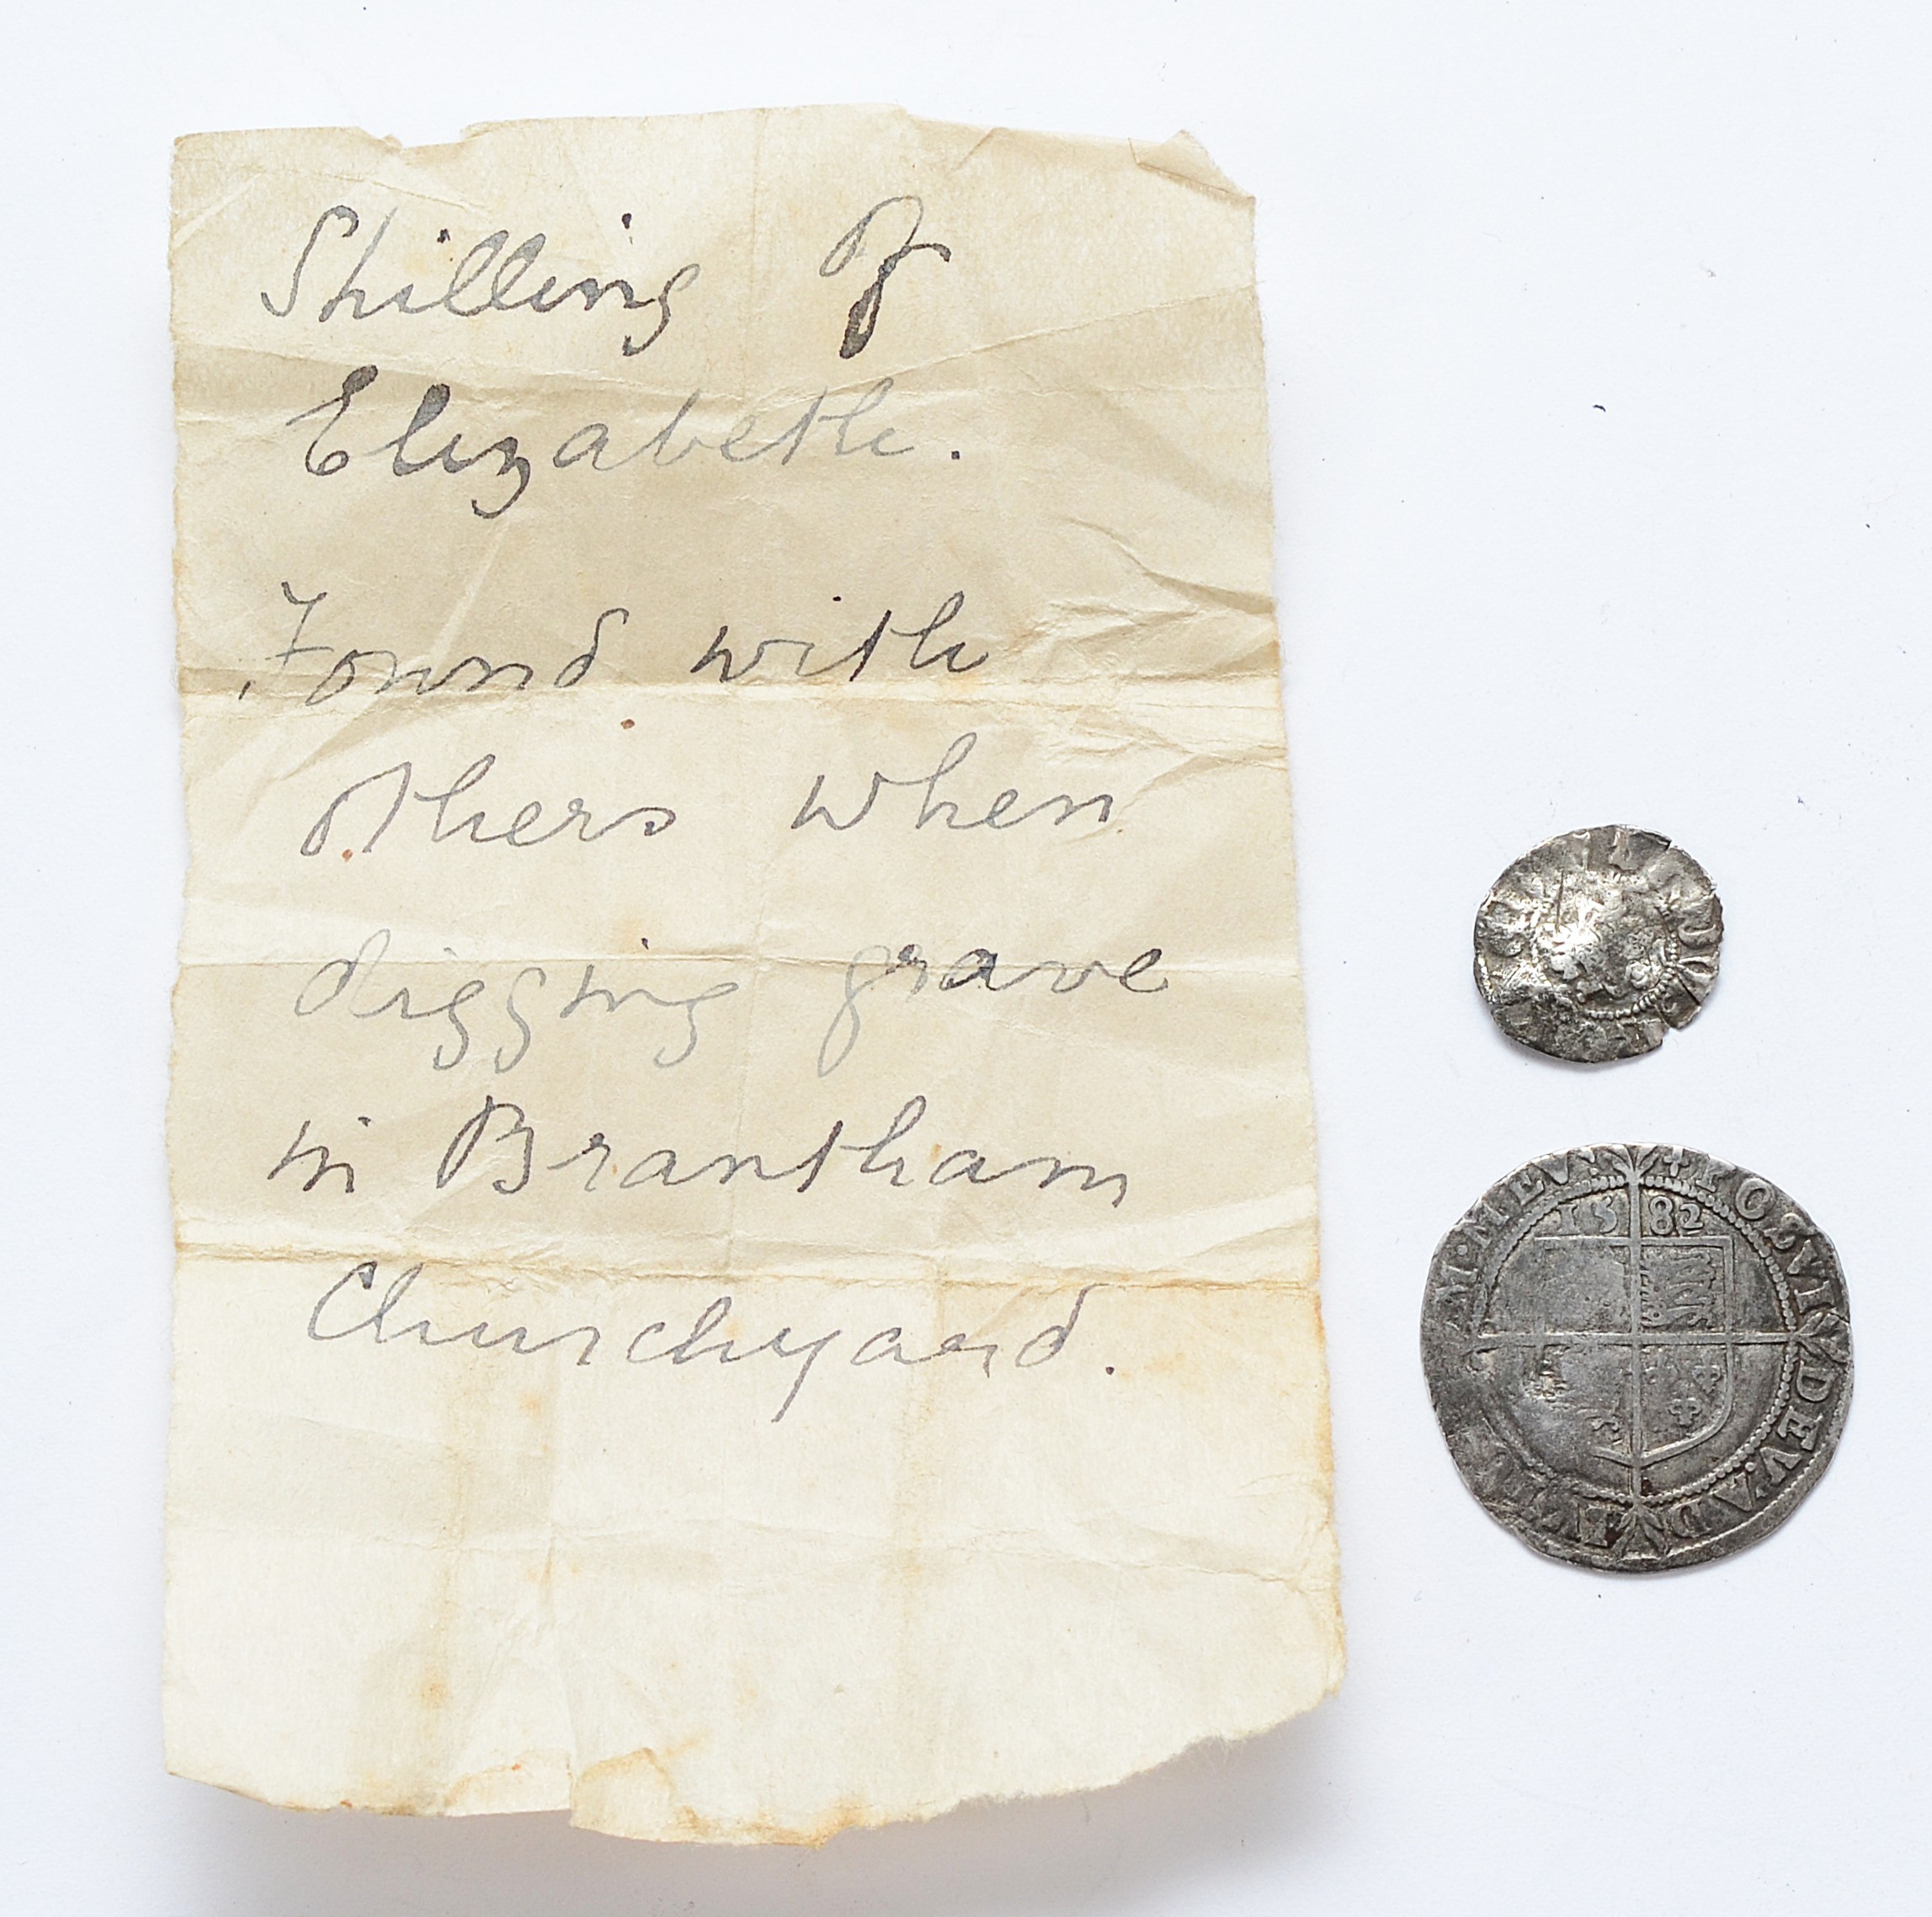 Shilling of
Elizabeth.
Found with
others when
digging grave
in Brantham
Churchyard.
1582
POSVI DEV·AD
M·MEV·